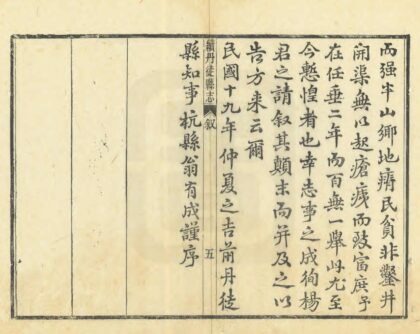 而强半山鄉地瘠民貧非鑿井
開渠無以起瘡痍而致富庶予
在任垂二年而百無一舉此尤至
今慙惶者也幸志事之成徇楊
君之請叙其顛末而并及之以
告方来云爾
民國十九年仲夏之吉前丹徒
續丹徒縣志 叙 五
縣知事杭縣翁有成謹序